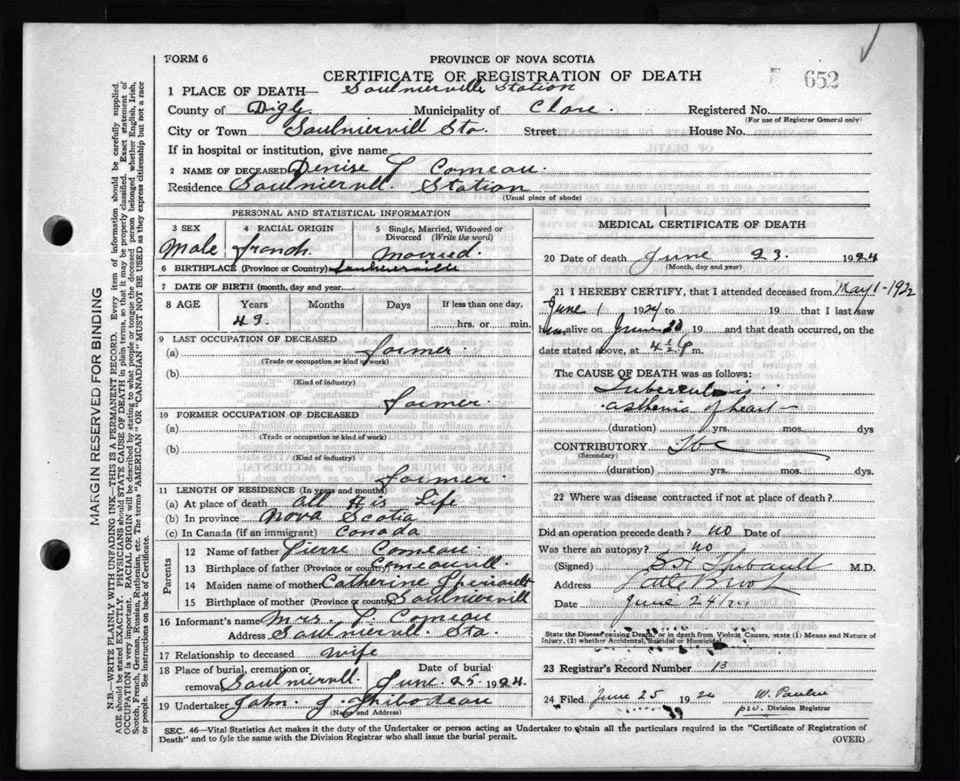 FORM 6
PROVINCE OF NOVA SCOTIA
CERTIFICATE OF REGISTRATION OF DEATH
652
1 PLACE OF DEATH— Saulnierville Station
County of Digby Municipality of Clare Registered No.
(For use of Registrar General only)
City or Town Saulniervill Sta. Street House No.
If in hospital or institution, give name
2 NAME OF DECEASED Denise Comeau.
Residence Saulniervill. Station
(Usual place of abode)
PERSONAL AND STATISTICAL INFORMATION
3 SEX 4 RACIAL ORIGIN 5 Single, Married, Widowed or Divorced (Write the word)
Male french. Married.
6 BIRTHPLACE (Province or Country)
7 DATE OF BIRTH (month, day and year)
8 AGE Years Months Days If less than one day,
43. hrs. or min.
9 LAST OCCUPATION OF DECEASED
(a) farmer.
(Trade or occupation or kind of work)
(b)
(Kind of industry)
farmer.
10 FORMER OCCUPATION OF DECEASED
(a)
(Trade or occupation or kind of work)
(b)
(Kind of industry)
farmer.
11 LENGTH OF RESIDENCE (In years and months)
(a) At place of death All His Life
(b) In province Nova Scotia
(c) In Canada (if an immigrant) Canada
Parents
12 Name of father Pierre Comeau.
13 Birthplace of father (Province or country)
14 Maiden name of mother Catherine
15 Birthplace of mother (Province or country) Saulniervill
16 Informant's name Mrs. Comeau
Address Saulniervill. Sta.
17 Relationship to deceased wife
18 Place of burial, cremation or removal Saulniervill. Date of burial June. 25. 1924.
19 Undertaker John. J. Thibodeau
(Name and Address)
MEDICAL CERTIFICATE OF DEATH
20 Date of death June 23. 1924
(Month, day and year)
21 I HEREBY CERTIFY, that I attended deceased from May 1-1922
June 1 1924 to 19 that I last saw
him alive on June 19 and that death occurred, on the
date stated above, at m.
The CAUSE OF DEATH was as follows:
Tuberculosis
asthenia of heart
(duration) yrs. mos. dys
CONTRIBUTORY Tbc
(Secondary)
(duration) yrs. mos. dys.
22 Where was disease contracted if not at place of death?
Did an operation precede death? no Date of
Was there an autopsy? no
(Signed) Thibault M.D.
Address
Date June 24/24
State the Disease causing Death, or in death from Violent Causes, state (1) Means and Nature of
Injury, (2) whether Accidental, Suicidal or Homicidal.
23 Registrar's Record Number 13
24 Filed June 25 1924
Division Registrar
SEC. 46—Vital Statistics Act makes it the duty of the Undertaker or person acting as Undertaker to obtain all the particulars required in the "Certificate of Registration of
Death" and to fyle the same with the Division Registrar who shall issue the burial permit.
(OVER)
MARGIN RESERVED FOR BINDING
N.B.—WRITE PLAINLY WITH UNFADING INK—THIS IS A PERMANENT RECORD. Every item of information should be carefully supplied.
AGE should be stated EXACTLY. PHYSICIANS should STATE CAUSE OF DEATH in plain terms, so that it may be properly classified. Exact statement of
OCCUPATION is very important. RACIAL ORIGIN will be described by stating to what people or tongue the deceased person belonged whether English, Irish,
Scotch, French, German, Russian, Ruthenian, etc. The terms "AMERICAN" OR "CANADIAN" MUST NOT BE USED as they express citizenship but not a race
or people. See instructions on back of Certificate.